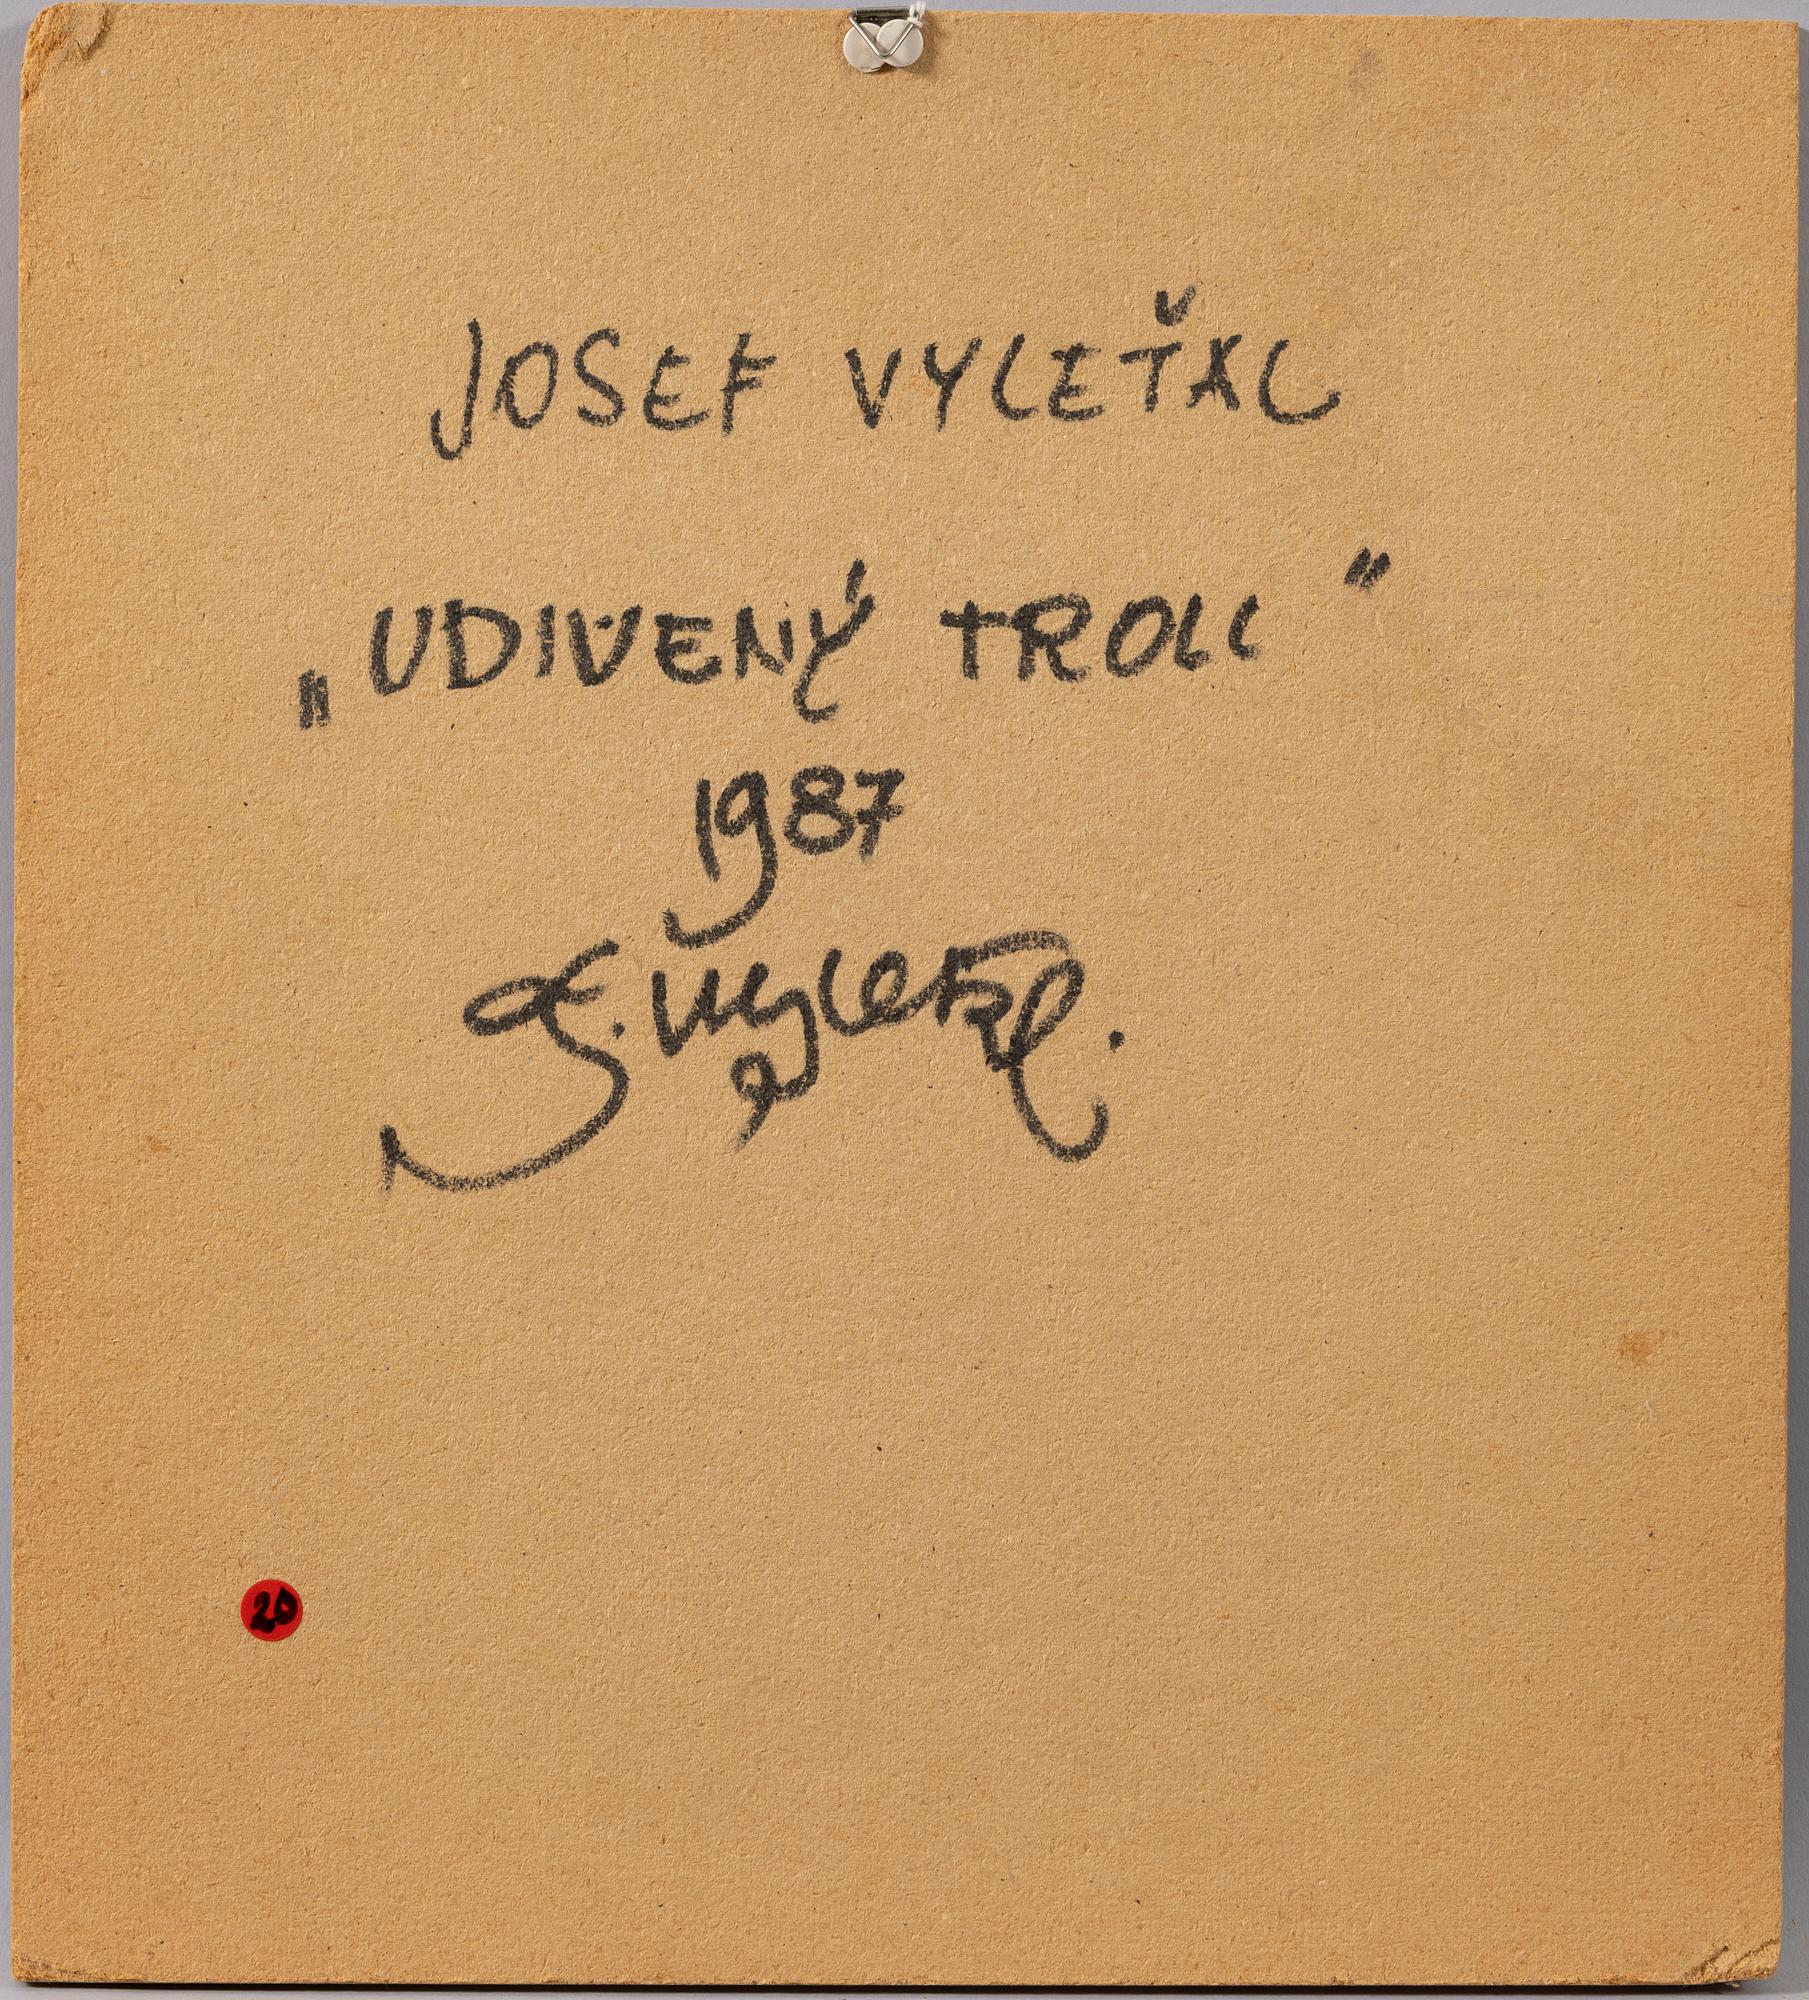 JOSEF VYLEŤAL
„UDIVENÝ TROLL"
1987
J. Vyleťal.
20